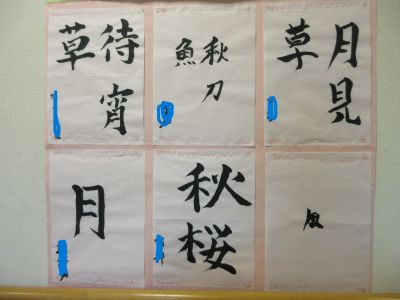 月見
草
秋刀
魚
待宵
草
秋桜
月